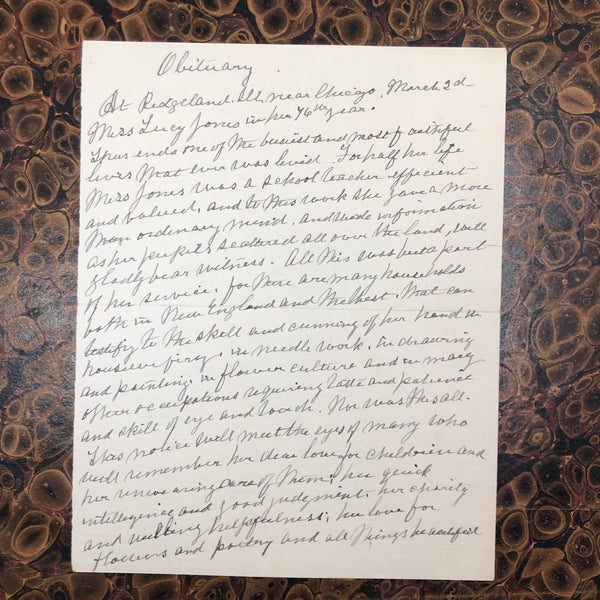 Obituary.
At Ridgeland Ill, near Chicago, March 2d
Miss Lucy Jones in her 76th year.
Thus ends one of the busiest and most faithful
lives that ever was lived. For half her life
Miss Jones was a school teacher efficient
and valued, and to this work she gave a more
than ordinary mind, and wide information
as her pupils scattered all over the land, will
gladly bear witness. All this was but a part
of her service, for there are many households
both in New England and the West, that can
testify to the skill and cunning of her hand in
housewifery, in needle work, in drawing
and painting, in flower culture and in many
other occupations requiring taste and patience
and skill of eye and touch. Nor was this all.
This notice will meet the eyes of many who
will remember her dear love for children and
her unwearing care of them; her quick
intelligence and good judgment, her charity
and willing helpfulness; her love for
flowers and poetry and all things beautiful